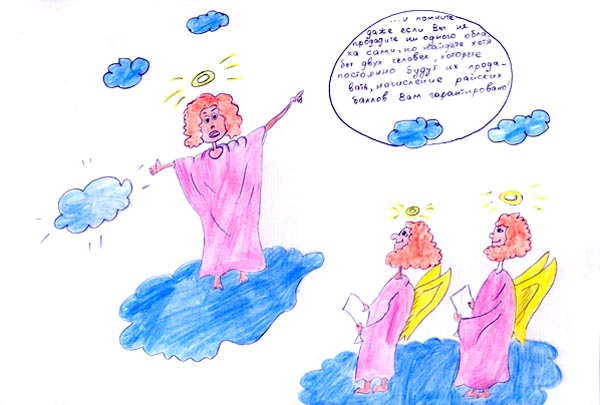 ...и помните
даже если Вы не
продадите ни одного обла-
ка сами, но найдете хотя
бы двух человек, которые
постоянно будут их прода-
вать, начисление райских
баллов Вам гарантировано!